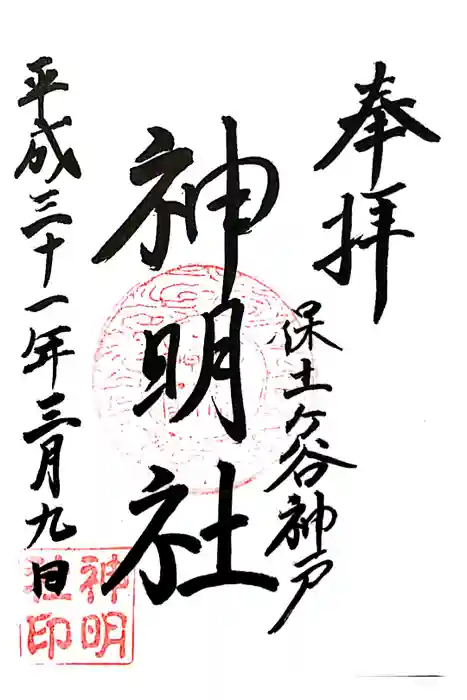 奉拝
保土ヶ谷神戸
神明社
平成三十一年三月九日
神明社印